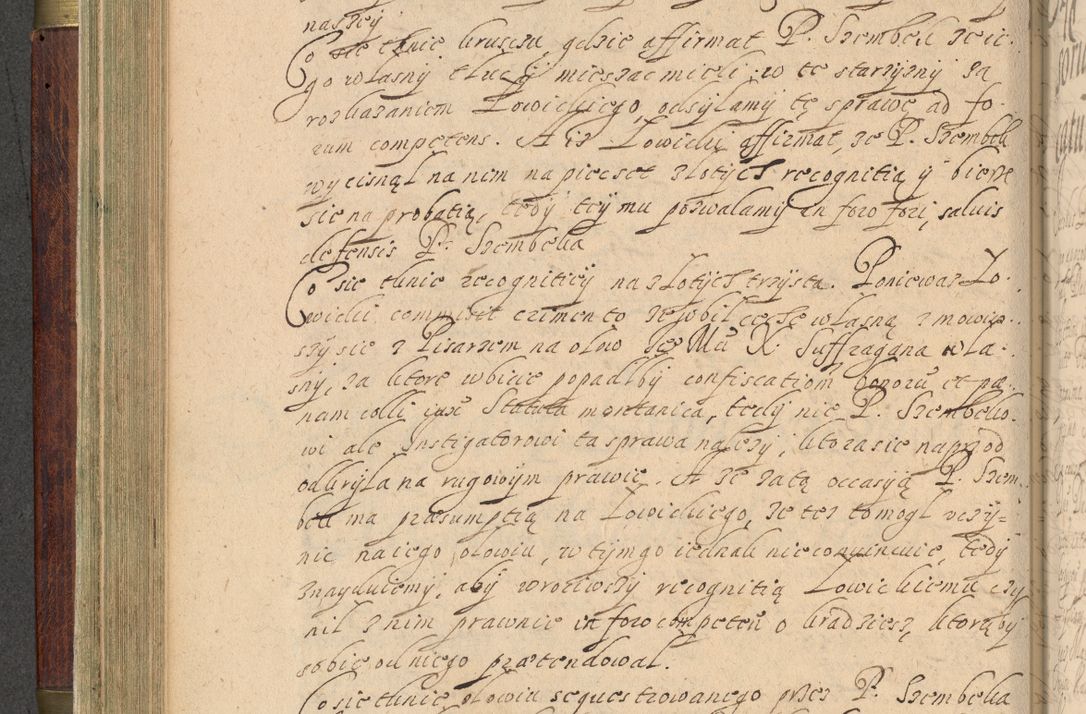 naszey
Co się tknie kruszcu, gdzie affirmat P. Szembek że ie-
go własny tłucz̨ mieszać mieli, w te starzyzny za
roskazaniem Łowickiego, odsyłamy tę sprawę ad fo-
rum competens. A iz Łowicki affirmat, że P. Szembek
wycisnął na nim na pięcset złotych recognitią y bierze
się na probatią, tedy tey mu pozwalamy in foro fori, salvis
defensis P. Szembeka
Co się tknie recognitiey na złotych trzysta. Poniewaz Ło-
wicki commisit crimen to że wbił cechę własną zmowiw-
szy się z Pisarzem na ołow Je Mci X. Suffragana wła-
sny, za ktore wbicie popadłby confiscatiom bonorũ et pœ-
nam colli iuxe Statuta montanica, tedy nie P. Szembeko-
wi ale Instigatorowi ta sprawa nalezy, ktora się naprzod
odkryła na rugowym prawie. A że zatą occasyją P. Szem-
bek ma præsumptią na Łowickiego, że tez to mogł uczy-
nic na iego ołowiu, w tym go iednak nie convincuie, tedy
znayduiemy, aby wrociwszy recognitią Łowickiemu czy
nił z nim prawnie in foro competeti o kradziesz, ktorąby
sobie od niego prætendował.
Co się tknie ołowiu sequestrowanego przez P. Szembeka